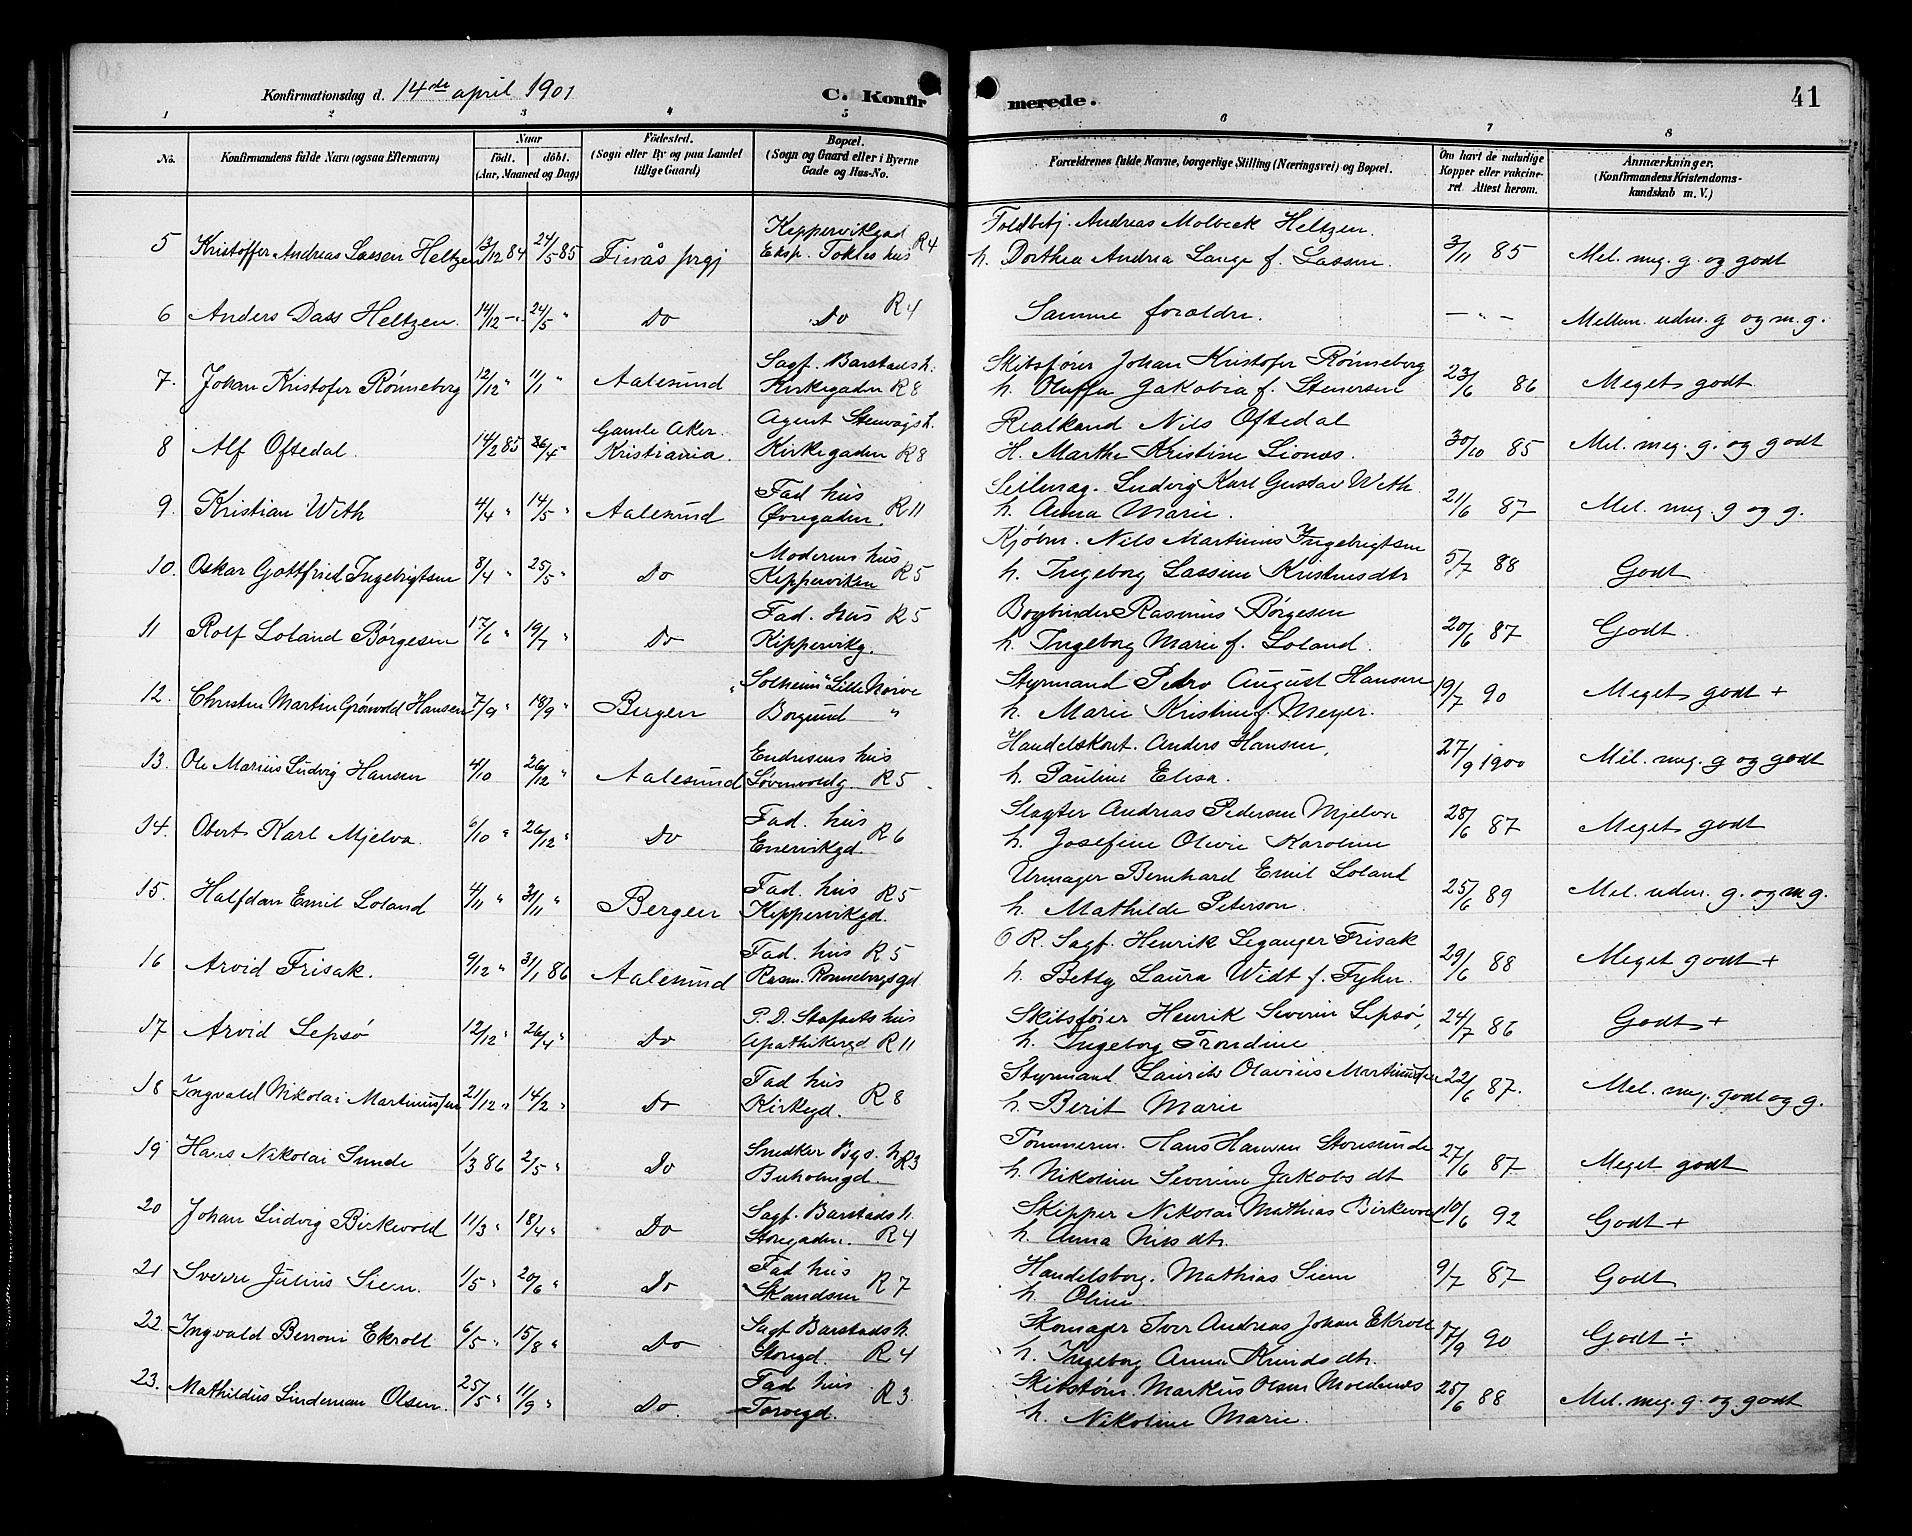 Konfirmationsdag d. 14de april 1901
C. Konfirmerede.
41
1 2 3 4 5 6 7 8
No. Konfirmandens fulde Navn (ogsaa Efternavn) Naar født. døbt. (Aar, Maaned og Dag) Fødested. (Sogn eller By og paa Landet tillige Gaard) Bopæl. (Sogn og Gaard eller i Byerne Gade og Hus-No. Forældrenes fulde Navne, borgerlige Stilling (Næringsvei) og Bopæl. Om havt de naturlige Kopper eller vakcineret. Attest herom. Anmærkninger. (Konfirmandens Kristendomskundskab m. V.)
Kippervikgad Andreas Molbeck Heltzen.
5 Kristoffer Andreas Lassen Heltzen 13/12 84 24/5 85 Finås prgj Eksp. Tokles hus R4 h. Dorthea Andrea Lange f. Lassen. 3/11 85 Mel. meg. g. og godt
6 Anders Dass Heltzen. 14/12 -"- 24/5 " Do Do R4 Samme forældre. - " - Mellem udm. g og m. g.
Sagf. Barstads h. Skibsfører Johan Kristofer Rønneberg
7. Johan Kristofer Rønneberg 12/12 " 11/1 " Aalesund Kirkegaden R8 h. Oluffa Jakobea f. Stenersen 23/6 86 Meget godt
Gamle Aker. Agent Stenvågs h. Realkand Nils Oftedal
8 Alf Oftedal. 14/2 85 26/4 " Kristiania. Kirkegaden R8 H. Marthe Kristine Lionæs. 30/10 85 Mel. meg. g. og godt
Fad hus Seilmag. Ludvig Karl Gustav With
9. Kristian With 4/4 " 14/5 " Aalesund Øvregaden. R11 h. Anna Marie. 21/6 87 Mel. meg. g og g.
Moderens hus Kjøbm. Nils Martinus Ingebrigtsen
10. Oskar Gottfried Ingebrigtsen 8/4 " 25/5 " Do Kipperviken R5 h. Ingeborg Lassine Kristensdtr 5/7 88 Godt
Fad. hus R5 Bogbinder Rasmus Børgesen
11 Rolf Loland Børgesen 17/6 " 19/7 " Do Kippervikg. h. Ingeborg Marie f. Loland. 20/6 87 Godt.
"Solheim" Lille Nørve Styrmand Pedro August Hansen
12. Christen Martin Grønvold Hansen 7/9 " 18/9 " Bergen Borgund " h. Marie Kristine f. Meyer. 19/7 90 Meget godt +
Endresens hus Handelskont. Anders Hansen,
13. Ole Marius Ludvig Hansen 4/10 26/12 " Aalesund Løvenvoldg. R5 h. Pauline Elisa. 27/9 1900 Mel. meg. g og godt
Fad. hus Slagter Andreas Pedersen Mjelva
14. Obert Karl Mjelva. 6/10 " 26/12 " Do Enervikgd. R6 h. Josefine Olivie Karoline 28/6 87 Meget godt
Fad. hus Urmager Bernhard Emil Loland
15. Halfdan Emil Loland 4/11 " 31/11 " Bergen Kippervikgd. R5 h. Mathilde Peterson. 25/6 89 Mel. udm. g. og m g.
Fad. hus R5 O R. Sagf. Henrik Leganger Frisak
16 Arvid Frisak. 9/12 " 31/1 86 Aalesund Rasm. Rønnebergs gd h. Betty Laura Widt f. 29/6 88 Meget godt +
P. D. Stafsets hus Skibsfører Henrik Severin Lepsø,
17 Arvid Lepsø 12/12 " 26/4 " Do Apothikergd R11 h. Ingeborg Trondine 24/7 86 Godt +
Fad hus Styrmand Laurits Olavius Martinussen
18 Ingvald Nikolai Martinussen 21/12 " 14/2 " Do Kirkegd. R8 h. Berit Marie 22/6 87. Mel. meg. godt og g.
Snedker Bys. h. R3 Tømmerm. Hans Hansen Storesunde
19 Hans Nikolai Sunde 1/3 86 2/5 " Do Buholmgd. h. Nikoline Severine Jakobs dt 27/6 87 Meget godt
Sagf. Barstads h. Skipper Nikolai Mathias Birkevold
20 Johan Ludvig Birkevold 11/3 " 18/4 " Do Storgaden. R4 h. Anna Nils dt. 10/6 92 Godt +
Fad hus Handelsborg. Mathias Siem
21 Sverre Julius Siem. 1/5 " 20/6 " Do Skandsen R7 h. Oline. 9/7 87 Godt
Sagf Barstads h. Skomager Iver Andreas Johan Ekroll
22. Ingvald Benoni Ekroll 6/5 " 15/8 " Do Storgd. R4 h. Ingeborg Anna Knuds dtr. 17/9 90 Godt ÷
Fad hus Skibstøm. Markus Olsen Moldenæs
23. Mathildus Lindeman Olsen. 25/5 " 11/9 " Do. Torvegd. R3 h. Nikoline Marie. 25/6 88 Mel. meg. g. og godt